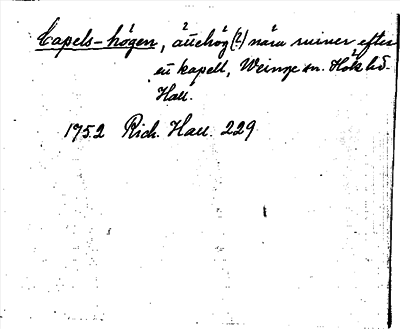 Capels-högen, ättehög (?) nära ruiner efter
en kapell, Weinge sn. Höks hd.
Hall.
1752 Rich. Hall. 229